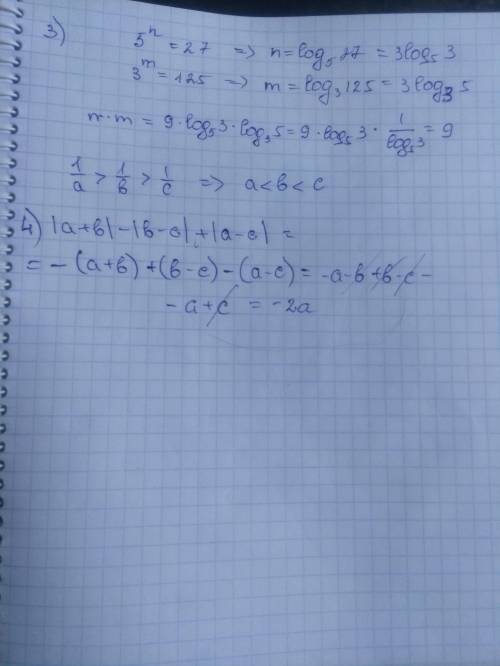 3)
5ⁿ = 27 => n = log₅ 27 = 3log₅ 3
3ᵐ = 125 => m = log₃ 125 = 3log₃ 5
n·m = 9·log₅3·log₃5 = 9·log₅3 · 1/log₅3 = 9
1/a > 1/b > 1/c => a < b < c
4) |a+b| - |b-c| + |a-c| =
= -(a+b) + (b-c) - (a-c) = -a-b+b-c-
-a+c = -2a